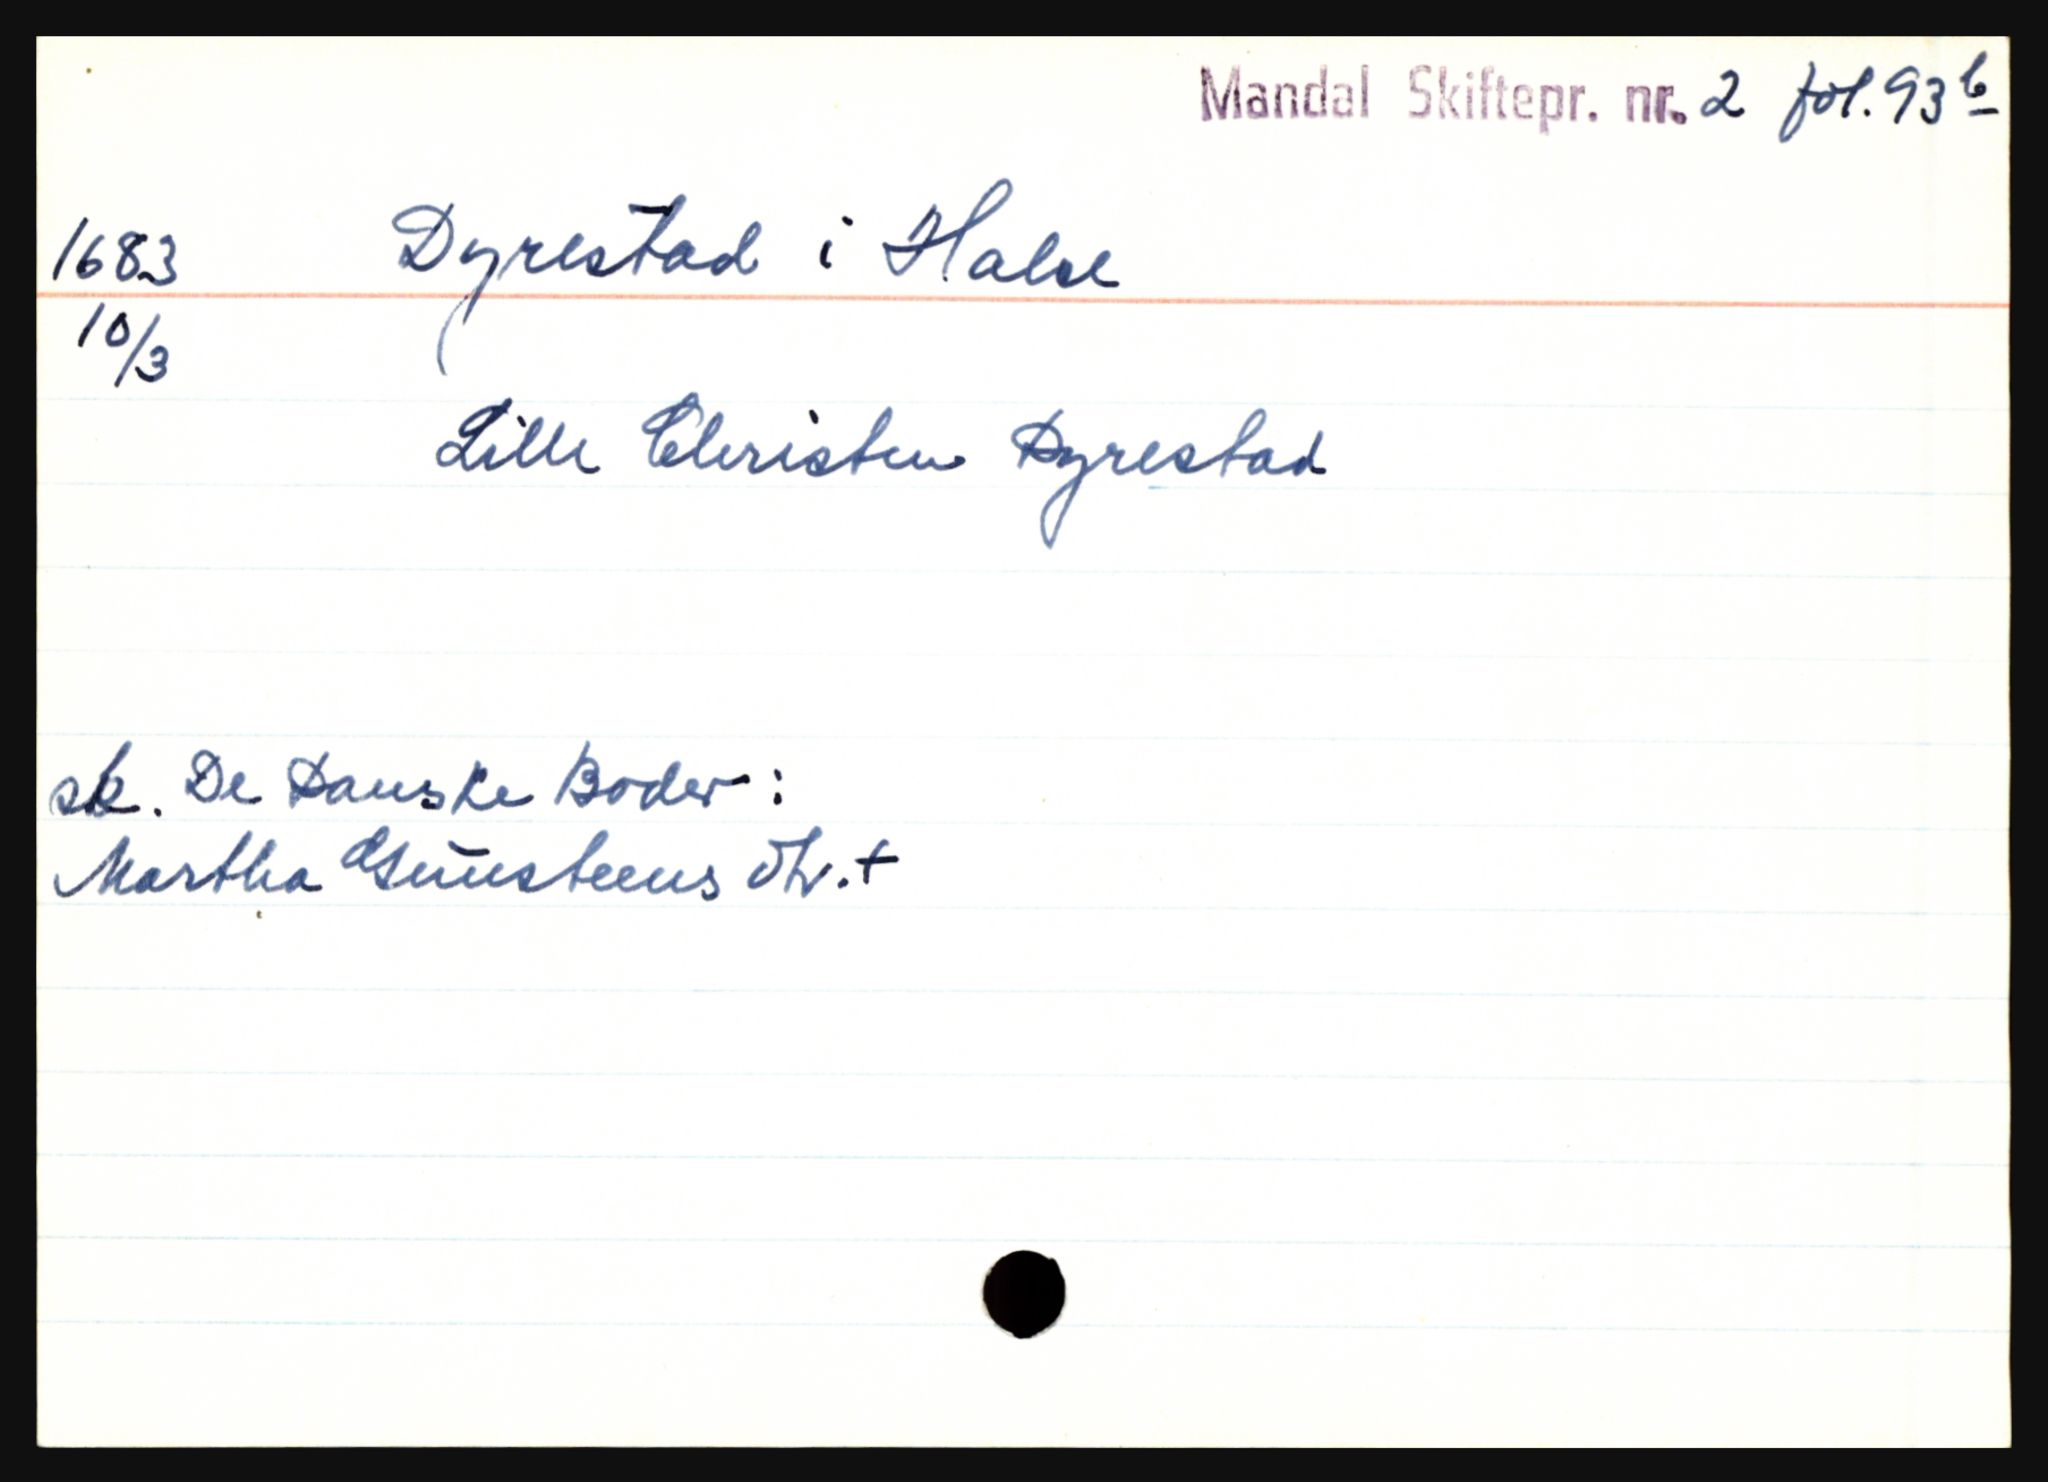 Mandal Skiftepr. nr. 2 fol. 93 b
1683 Dyrestad i Halse
10/3
Lille Christen Dyrestad
sk. De Danske Boder:
Martha Gunsteens dtr. +